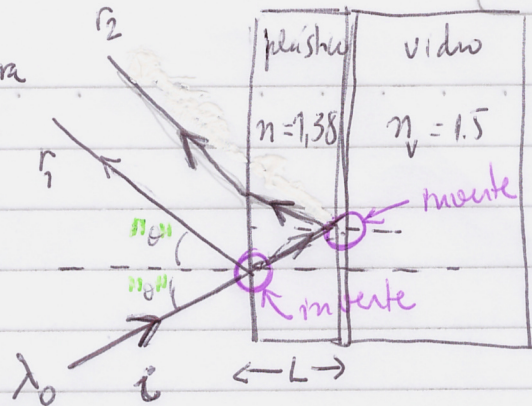 r₂
ra
plástico vidro
n=1,38 n_v = 1.5
r₁
inverte
"θ"
"θ"
inverte
λ₀ i ←L→